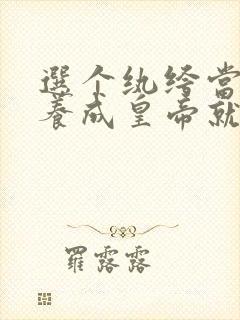 選个紈绔當
養成皇帝就
羅露露